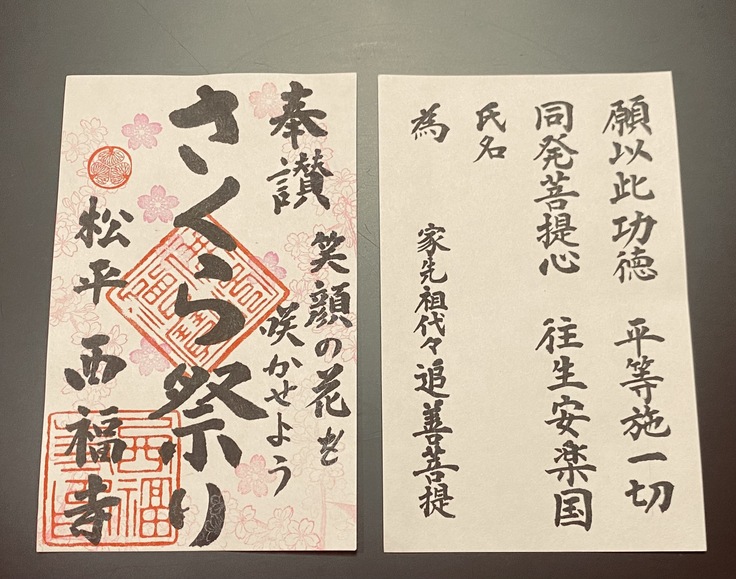 奉讃
笑顔の花を
咲かせよう
さくら祭り
松平 西福寺
西福
願以此功徳 平等施一切
同発菩提心 往生安楽国
氏名
為 家先祖代々追善菩提